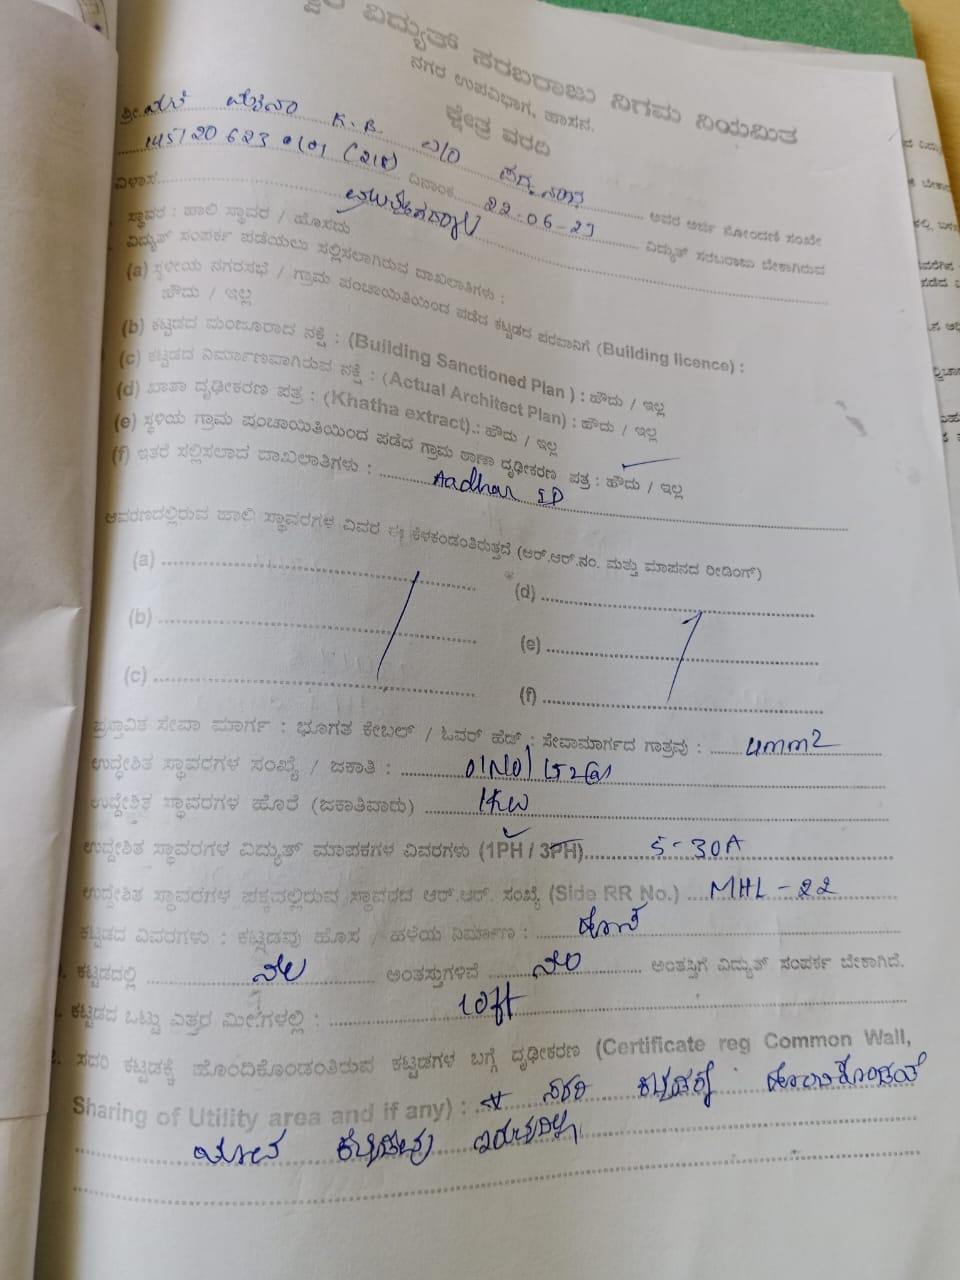 ವಿದ್ಯುತ್ ಸರಬರಾಜು ನಿಗಮ ನಿಯಮಿತ
ನಗರ ಉಪವಿಭಾಗ, ಹಾಸನ.
ಕ್ಷೇತ್ರ ವರದಿ
ಶ್ರೀಮತಿ K.B. ಅವರ ಅರ್ಜಿ ನೋಂದಣಿ ಸಂಖ್ಯೆ
ದಿನಾಂಕ 22-06-23 ವಿದ್ಯುತ್ ಸರಬರಾಜು ಬೇಕಾಗಿರುವ
ವಿಳಾಸ
ಸ್ಥಾವರ : ಹಾಲಿ ಸ್ಥಾವರ / ಹೊಸದು
ವಿದ್ಯುತ್ ಸಂಪರ್ಕ ಪಡೆಯಲು ಸಲ್ಲಿಸಲಾಗಿರುವ ದಾಖಲಾತಿಗಳು :
(a) ಸ್ಥಳೀಯ ನಗರಸಭೆ / ಗ್ರಾಮ ಪಂಚಾಯಿತಿಯಿಂದ ಪಡೆದ ಕಟ್ಟಡದ ಪರವಾನಿಗೆ (Building licence) :
ಹೌದು / ಇಲ್ಲ
(b) ಕಟ್ಟಡದ ಮಂಜೂರಾದ ನಕ್ಷೆ : (Building Sanctioned Plan ) : ಹೌದು / ಇಲ್ಲ
(c) ಕಟ್ಟಡದ ನಿರ್ಮಾಣವಾಗಿರುವ ನಕ್ಷೆ : (Actual Architect Plan) : ಹೌದು / ಇಲ್ಲ
(d) ಖಾತಾ ದೃಢೀಕರಣ ಪತ್ರ : (Khatha extract).: ಹೌದು / ಇಲ್ಲ
(e) ಸ್ಥಳಿಯ ಗ್ರಾಮ ಪಂಚಾಯಿತಿಯಿಂದ ಪಡೆದ ಗ್ರಾಮ ಠಾಣಾ ದೃಢೀಕರಣ ಪತ್ರ : ಹೌದು / ಇಲ್ಲ
(f) ಇತರೆ ಸಲ್ಲಿಸಲಾದ ದಾಖಲಾತಿಗಳು : Aadhar ID
ಆವರಣದಲ್ಲಿರುವ ಹಾಲಿ ಸ್ಥಾವರಗಳ ವಿವರ ಈ ಕೆಳಕಂಡಂತಿರುತ್ತದೆ (ಆರ್.ಆರ್.ನಂ. ಮತ್ತು ಮಾಪನದ ರೀಡಿಂಗ್)
(a) (d)
(b) (e)
(c) (f)
ಪ್ರಸ್ತಾವಿತ ಸೇವಾ ಮಾರ್ಗ : ಭೂಗತ ಕೇಬಲ್ / ಓವರ್ ಹೆಡ್ : ಸೇವಾಮಾರ್ಗದ ಗಾತ್ರವು : 4mm2
ಉದ್ಧೇಶಿತ ಸ್ಥಾವರಗಳ ಸಂಖ್ಯೆ / ಜಕಾತಿ :
ಉದ್ದೇಶಿತ ಸ್ಥಾವರಗಳ ಹೊರೆ (ಜಕಾತಿವಾರು) 1KW
ಉದ್ದೇಶಿತ ಸ್ಥಾವರಗಳ ವಿದ್ಯುತ್ ಮಾಪಕಗಳ ವಿವರಗಳು (1PH / 3PH) 5-30A
ಉದ್ದೇಶಿತ ಸ್ಥಾವರಗಳ ಪಕ್ಕದಲ್ಲಿರುವ ಸ್ಥಾವರದ ಆರ್.ಆರ್. ಸಂಖ್ಯೆ (Side RR No.) MHL-22
ಕಟ್ಟಡದ ವಿವರಗಳು : ಕಟ್ಟಡವು ಹೊಸ / ಹಳೆಯ ನಿರ್ಮಾಣ : ಹೊಸ
ಕಟ್ಟಡದಲ್ಲಿ ನೆಲ ಅಂತಸ್ತುಗಳಿವೆ ನೆಲ ಅಂತಸ್ತಿಗೆ ವಿದ್ಯುತ್ ಸಂಪರ್ಕ ಬೇಕಾಗಿದೆ.
ಕಟ್ಟಡದ ಒಟ್ಟು ಎತ್ತರ ಮೀ.ಗಳಲ್ಲಿ : 10ft
ಸದರಿ ಕಟ್ಟಡಕ್ಕೆ ಹೊಂದಿಕೊಂಡಂತಿರುವ ಕಟ್ಟಡಗಳ ಬಗ್ಗೆ ದೃಢೀಕರಣ (Certificate reg Common Wall,
Sharing of Utility area and if any) : ಸದರಿ ಕಟ್ಟಡಕ್ಕೆ ಹೊಂದಿಕೊಂಡಂತೆ
ಯಾವ ಕಟ್ಟಡವು ಇರುವುದಿಲ್ಲ